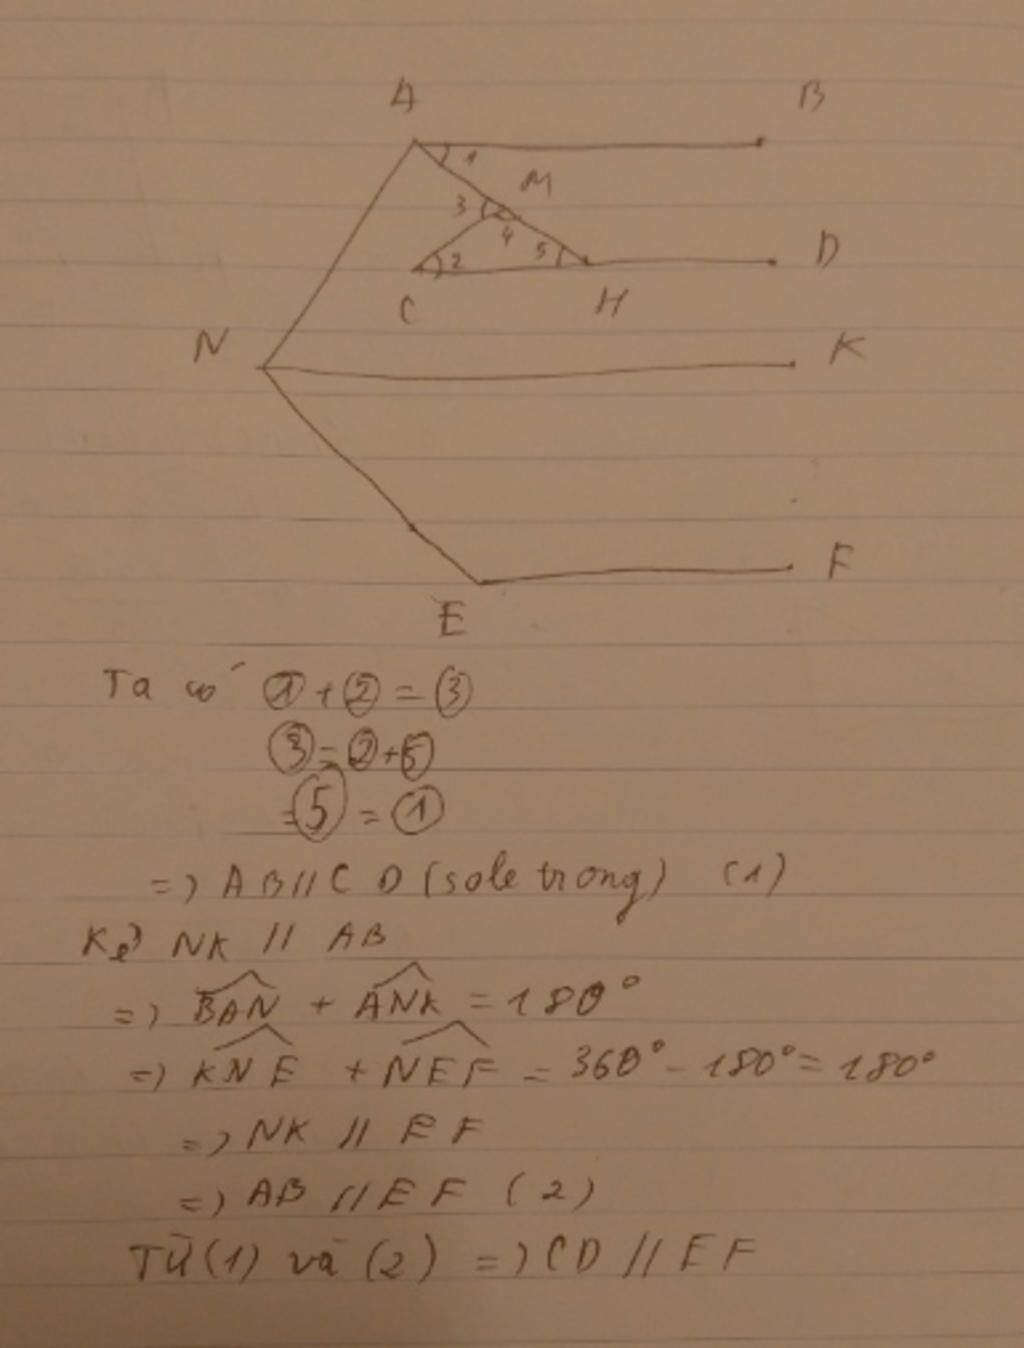 A B
1 M
3
4 5 D
2
C H
N K
F
E
Ta có ① + ② = ③
③ = ② + ⑤
=) ⑤ = ①
=) AB // CD (sole trong) (1)
Kẻ NK // AB
=) BAN + ANK = 180°
=) KNE + NEF = 360° - 180° = 180°
=) NK // EF
=) AB // EF (2)
Từ (1) và (2) =) CD // EF